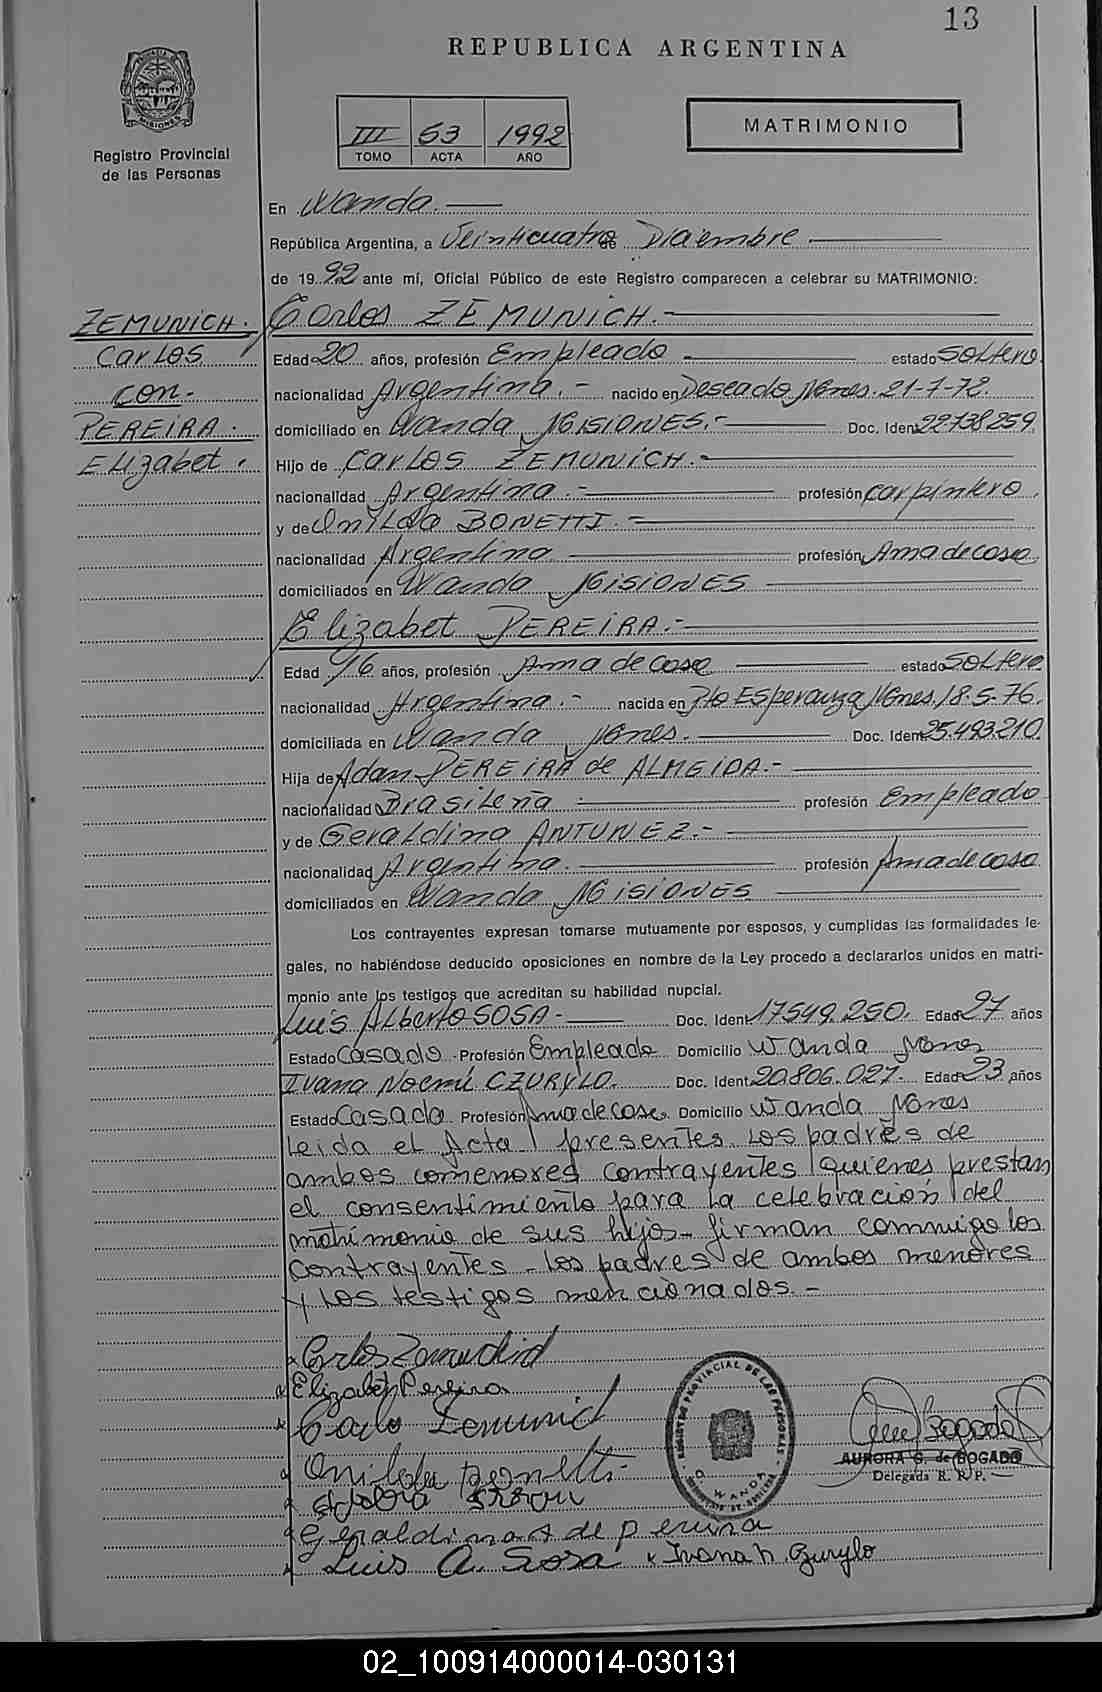 13
REPUBLICA ARGENTINA
MISIONES
Registro Provincial
de las Personas
III 53 1992
TOMO ACTA AÑO
MATRIMONIO
En Wanda.
República Argentina, a Veinticuatro Diciembre
de 1992 ante mí, Oficial Público de este Registro comparecen a celebrar su MATRIMONIO:
ZEMUNICH.
CARLOS
CON.
PEREIRA.
ELizabet.
Carlos ZEMUNICH.
Edad 20 años, profesión Empleado estado Soltero
nacionalidad Argentina. nacido en Deseado Mnes. 21-7-72.
domiciliado en Wanda MISIONES. Doc. Ident. 22.738.259
Hijo de CARLOS ZEMUNICH.
nacionalidad Argentina. profesión Carpintero.
y de Onilda BONETTI.
nacionalidad Argentina profesión Ama de casa
domiciliados en Wanda MISIONES
Elizabet PEREIRA.
Edad 16 años, profesión Ama de casa estado Soltera
nacionalidad Argentina. nacida en Pto Esperanza Mnes. 18.5.76.
domiciliada en Wanda Mnes. Doc. Ident. 25.493.210.
Hija de Adan PEREIRA de ALMEIDA.
nacionalidad Brasileña profesión Empleado
y de Geraldina ANTUNEZ.
nacionalidad Argentina. profesión Ama de casa
domiciliados en Wanda MISIONES
Los contrayentes expresan tomarse mutuamente por esposos, y cumplidas las formalidades le-
gales, no habiéndose deducido oposiciones en nombre de la Ley procedo a declararlos unidos en matri-
monio ante los testigos que acreditan su habilidad nupcial.
Luis Alberto SOSA Doc. Ident. 17.549.250. Edad 27 años
Estado Casado Profesión Empleado Domicilio Wanda Mnes
Ivana Noemí CZURYLO. Doc. Ident. 20.806.027. Edad 23 años
Estado Casada Profesión Ama de casa Domicilio Wanda Mnes
Leida el Acta presentes los padres de
ambos comenores contrayentes quienes prestan
el consentimiento para la celebración del
matrimonio de sus hijos firman conmigo los
contrayentes - los padres de ambos menores
y los testigos mencionados.-
Elizabet Pereira
Carlos Zemunich
Onilda Bonetti
Geraldina A de pereira
Luis A. Sosa x Ivana N. Czurylo
REGISTRO PROVINCIAL DE LAS PERSONAS
WANDA
AURORA G. de BOGADO
Delegada R. P. P.
02_100914000014-030131